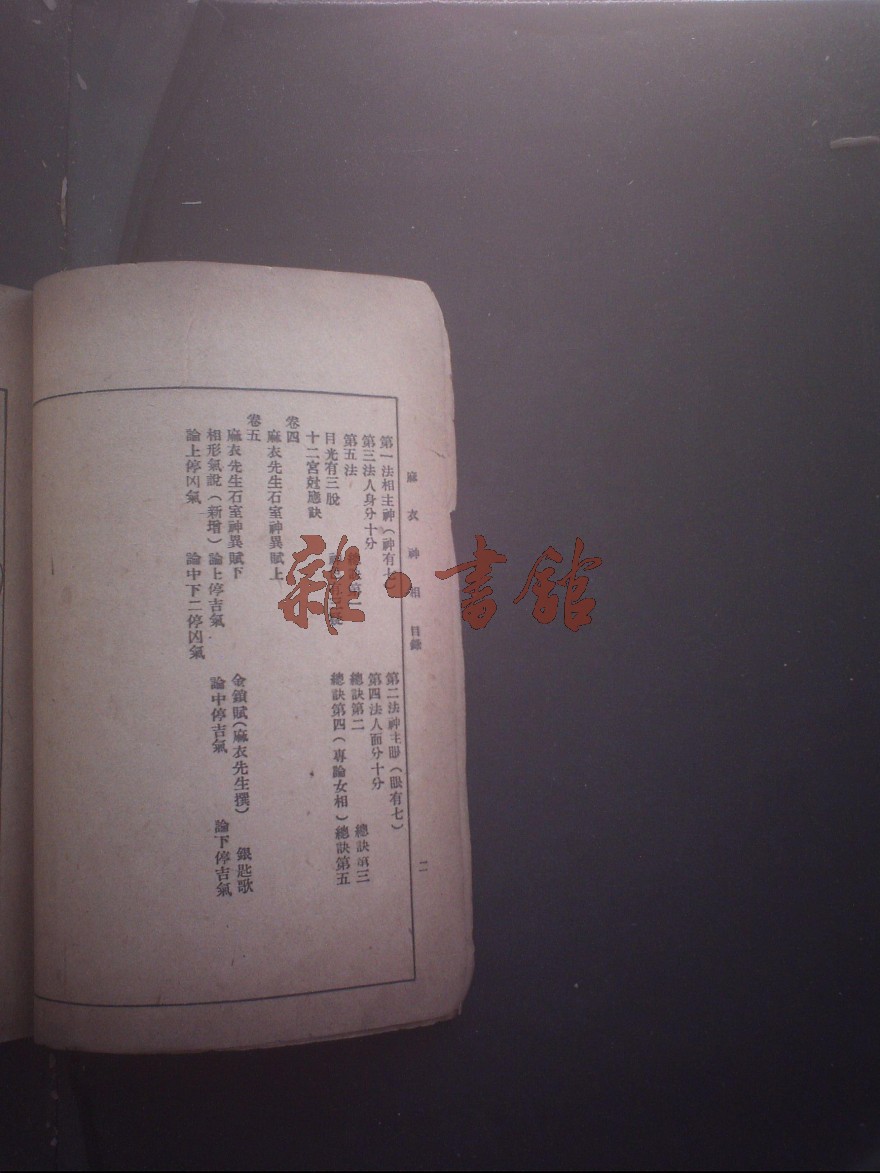 麻衣神相 目錄 二
第一法相主神(神有七) 第二法神主眼(眼有七)
第三法人身分十分 第四法人面分十分
第五法 總訣第一 總訣第二 總訣第三
目光有三脫 總訣第四(專論女相) 總訣第五
十二宮尅應訣
卷四
麻衣先生石室神異賦上
卷五
麻衣先生石室神異賦下 金鎖賦(麻衣先生撰) 銀匙歌
相形氣說(新增) 論上停吉氣 論中停吉氣 論下停吉氣
論上停凶氣 論中下二停凶氣
雜·書館